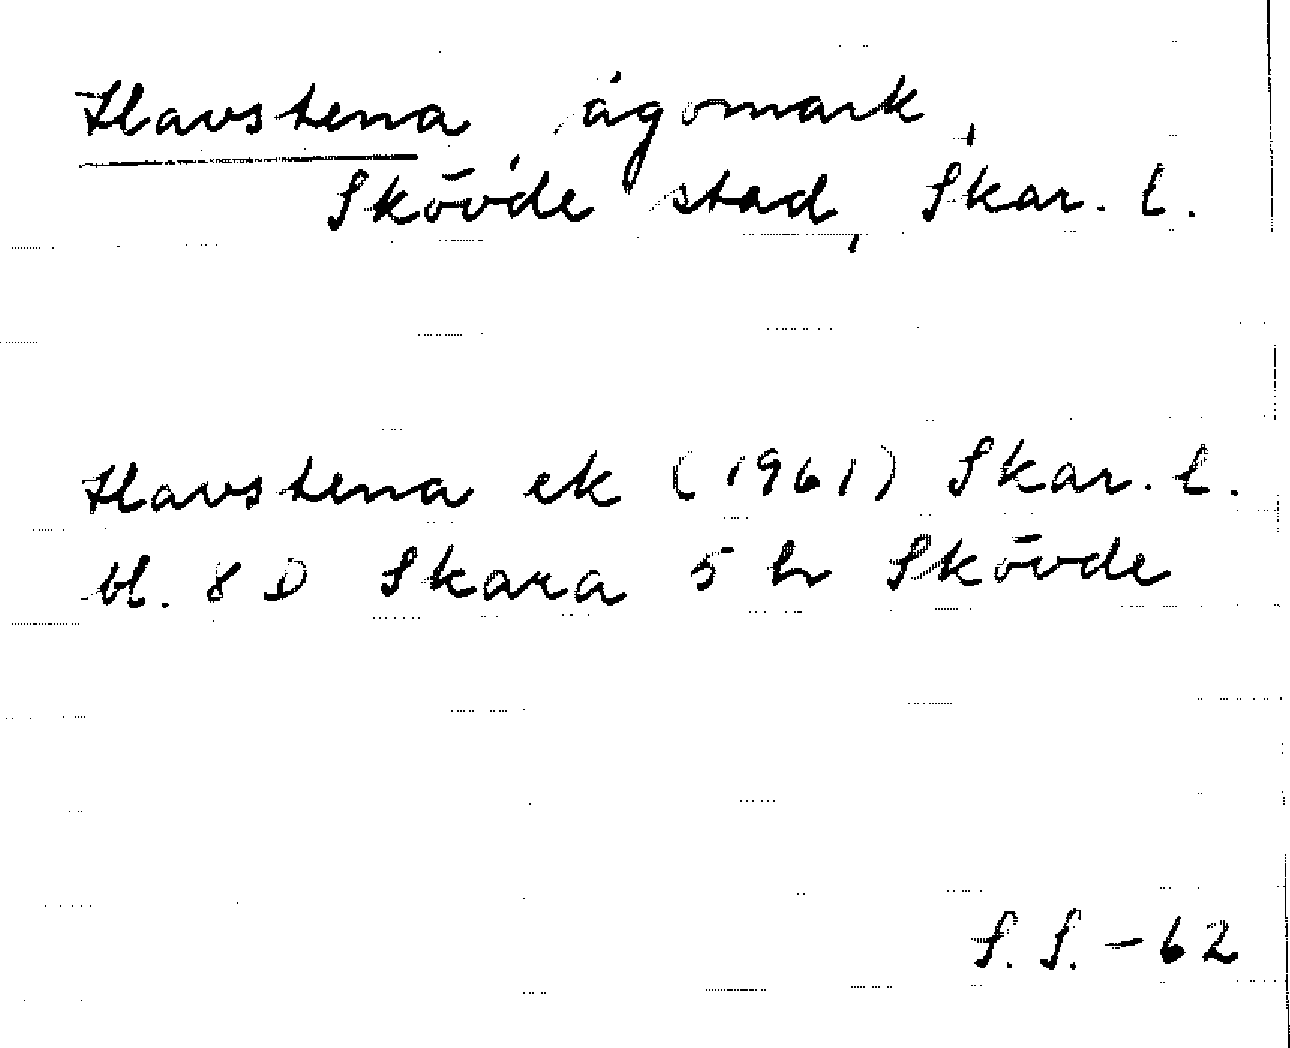 Havstena ägomark,
Skövde stad, Skar. l.
Havstena ek (1961) Skar. l.
bl. 8 D Skara 5 h Skövde
S. S. - 62